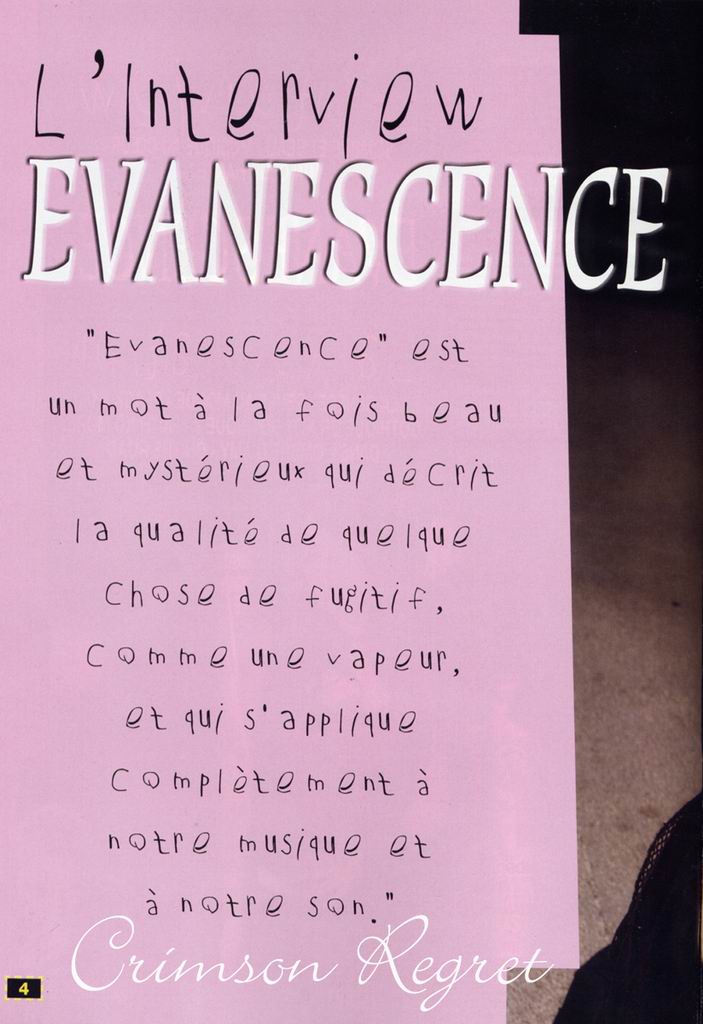 L'Interview
EVANESCENCE
"Evanescence" est
un mot à la fois beau
et mystérieux qui décrit
la qualité de quelque
chose de fugitif,
comme une vapeur,
et qui s'applique
complètement à
notre musique et
à notre son."
Crimson Regret
4